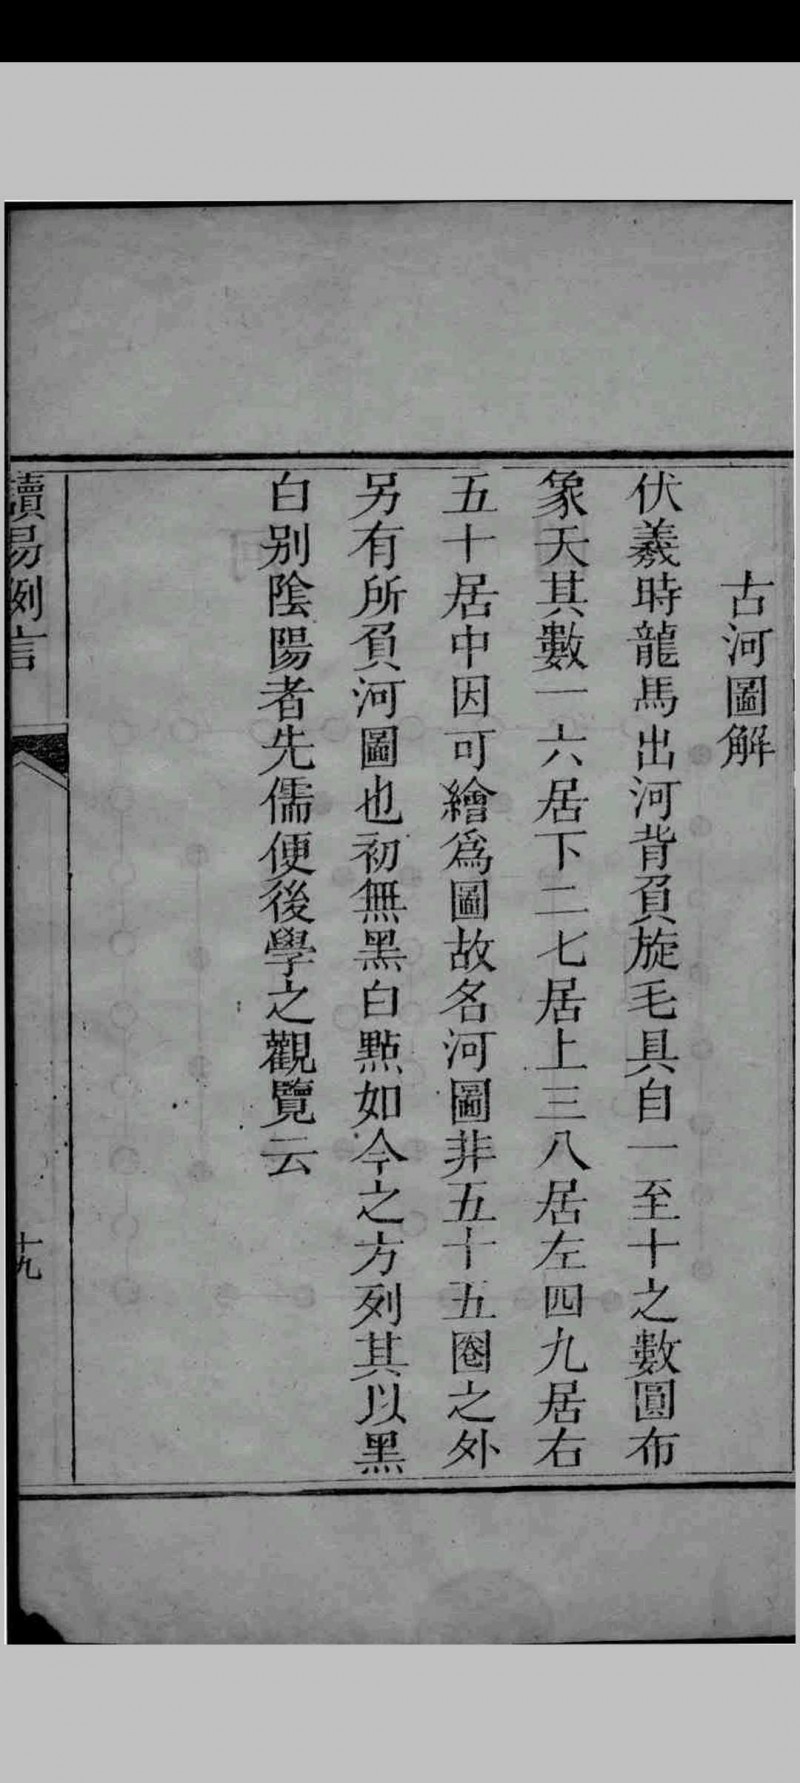 古河圖解
伏羲時龍馬出河背負旋毛具自一至十之數圓布
象天其數一六居下二七居上三八居左四九居右
五十居中因可繪爲圖故名河圖非五十五圈之外
另有所負河圖也初無黑白點如今之方列其以黑
白别陰陽者先儒便後學之觀覽云
讀易例言
十九